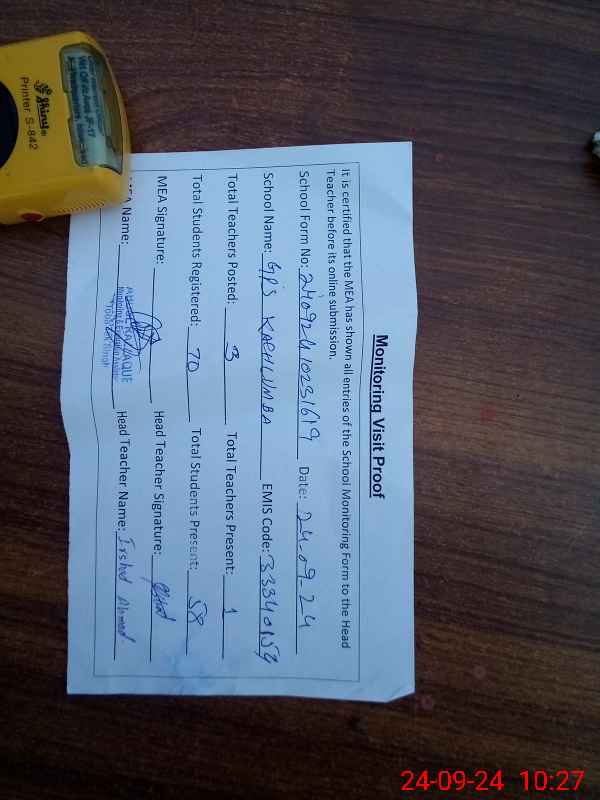 Monitoring Visit Proof
It is certified that the MEA has shown all entries of the School Monitoring Form to the Head
Teacher before its online submission.
School Form No: 24092410231619 Date: 24-09-24
School Name: GPS KAPHLUMBA EMIS Code: 33340153
Total Teachers Posted: 3 Total Teachers Present: 1
Total Students Registered: 70 Total Students Present: 58
MEA Signature: Head Teacher Signature: Irshad
MEA Name: RAZZAQUE Head Teacher Name: Irshad Ahmed
Monitoring &
Shiny®
Printer S-842
24-09-24 10:27